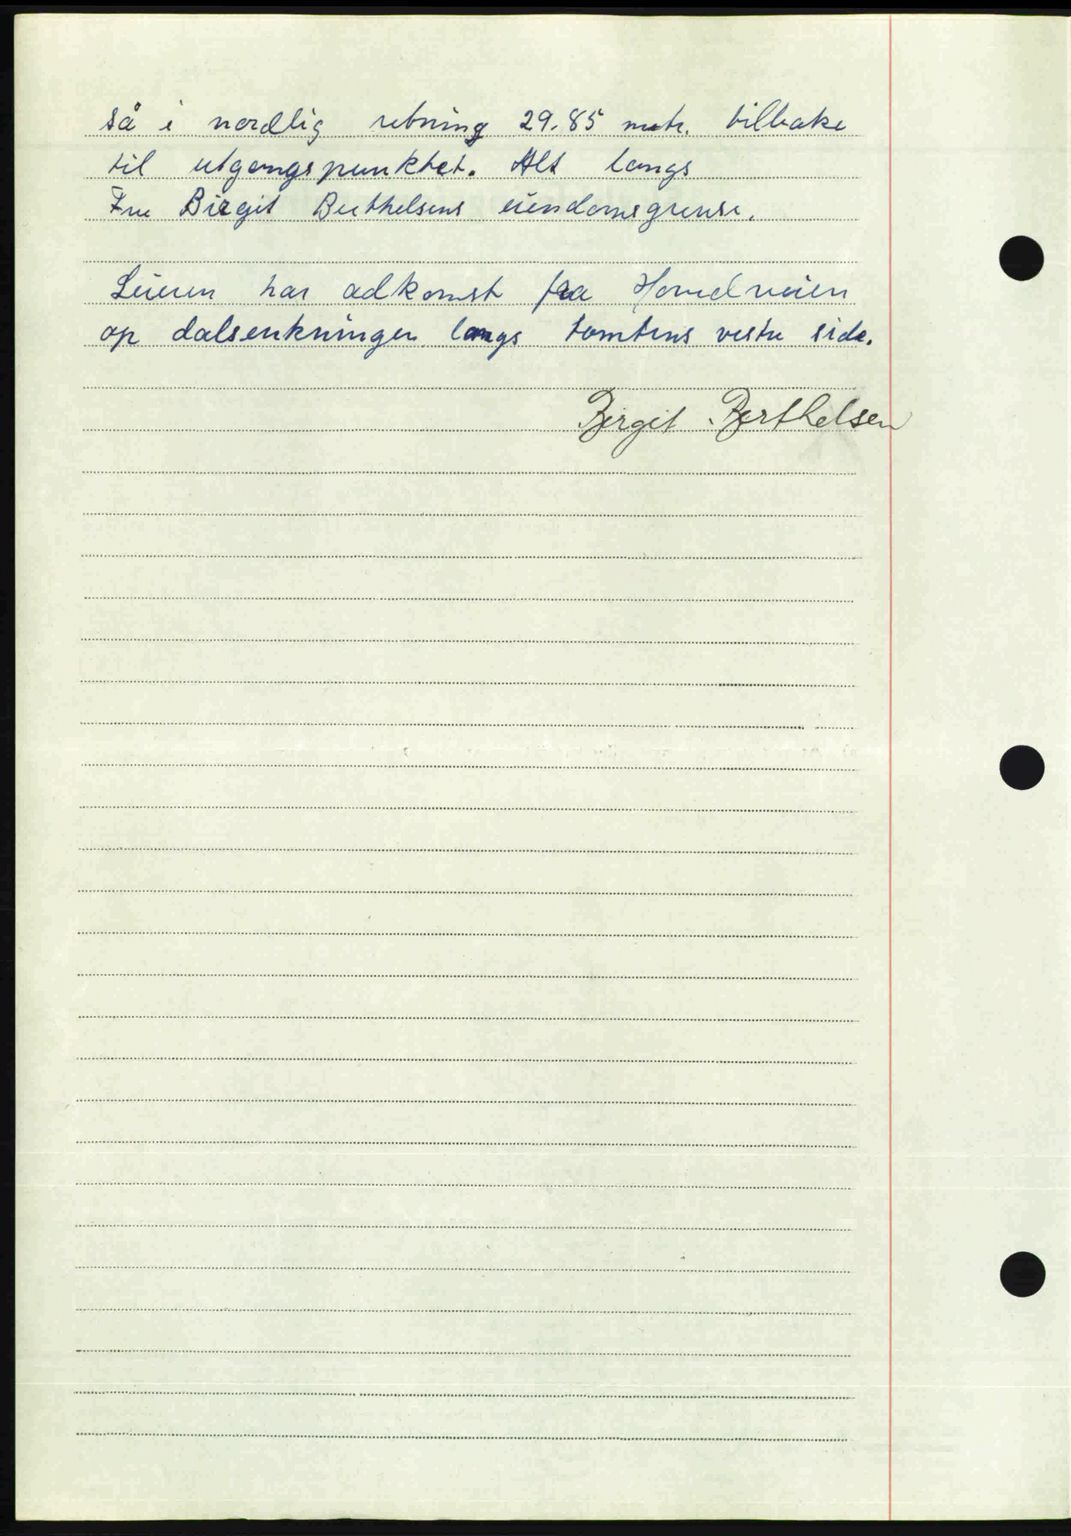 så i nordlig retning 29.85 metr. tilbake
til utgangspunktet. Alt langs
Fru Birgit Berthelsens eiendomsgrense.
Leieren har adkomst fra Hovedveien
op dalsenkningen langs tomtens vestre side.
Birgit Berthelsen